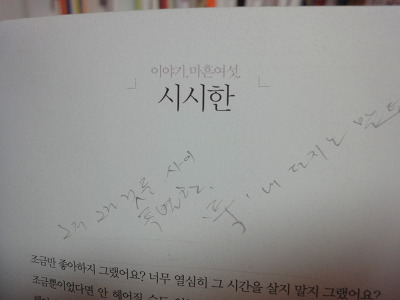 이야기, 마흔여섯.
시시한
그저 그런 것들 사이
특별한.
툭, 내 던지는 말
조금만 좋아하지 그랬어요? 너무 열심히 그 시간을 살지 말지 그랬어요?
조금뿐이었다면 안 헤어질 수도